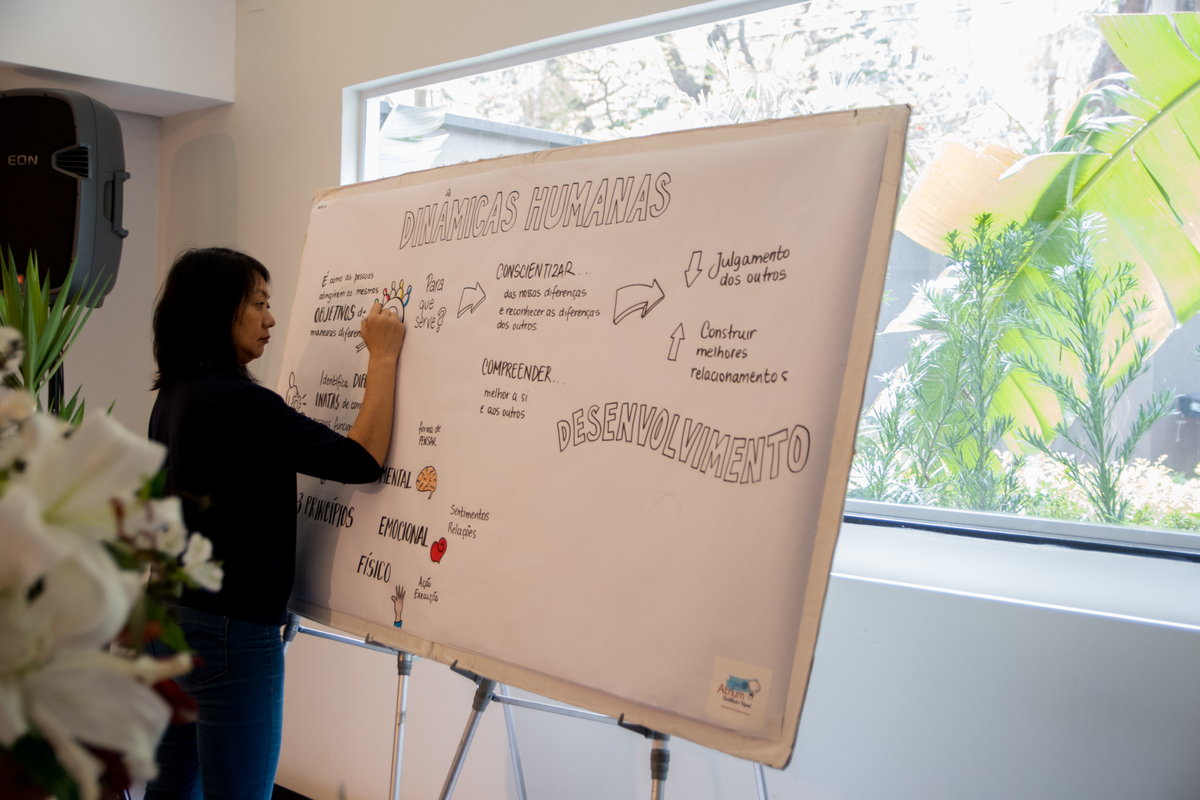 EON
DINÂMICAS HUMANAS
É como as pessoas
atingirem os mesmos
OBJETIVOS
maneiras
Para
que
serve?
CONSCIENTIZAR...
das nossas diferenças
e reconhecer as diferenças
dos outros
Julgamento
dos outros
Construir
melhores
relacionamentos
COMPREENDER...
melhor a si
e aos outros
DESENVOLVIMENTO
Identifica
INATAS de
forma de
PENSAR
MENTAL
3 PRINCÍPIOS
EMOCIONAL
Sentimentos
Relações
FÍSICO
Ação
Execução
Atrium